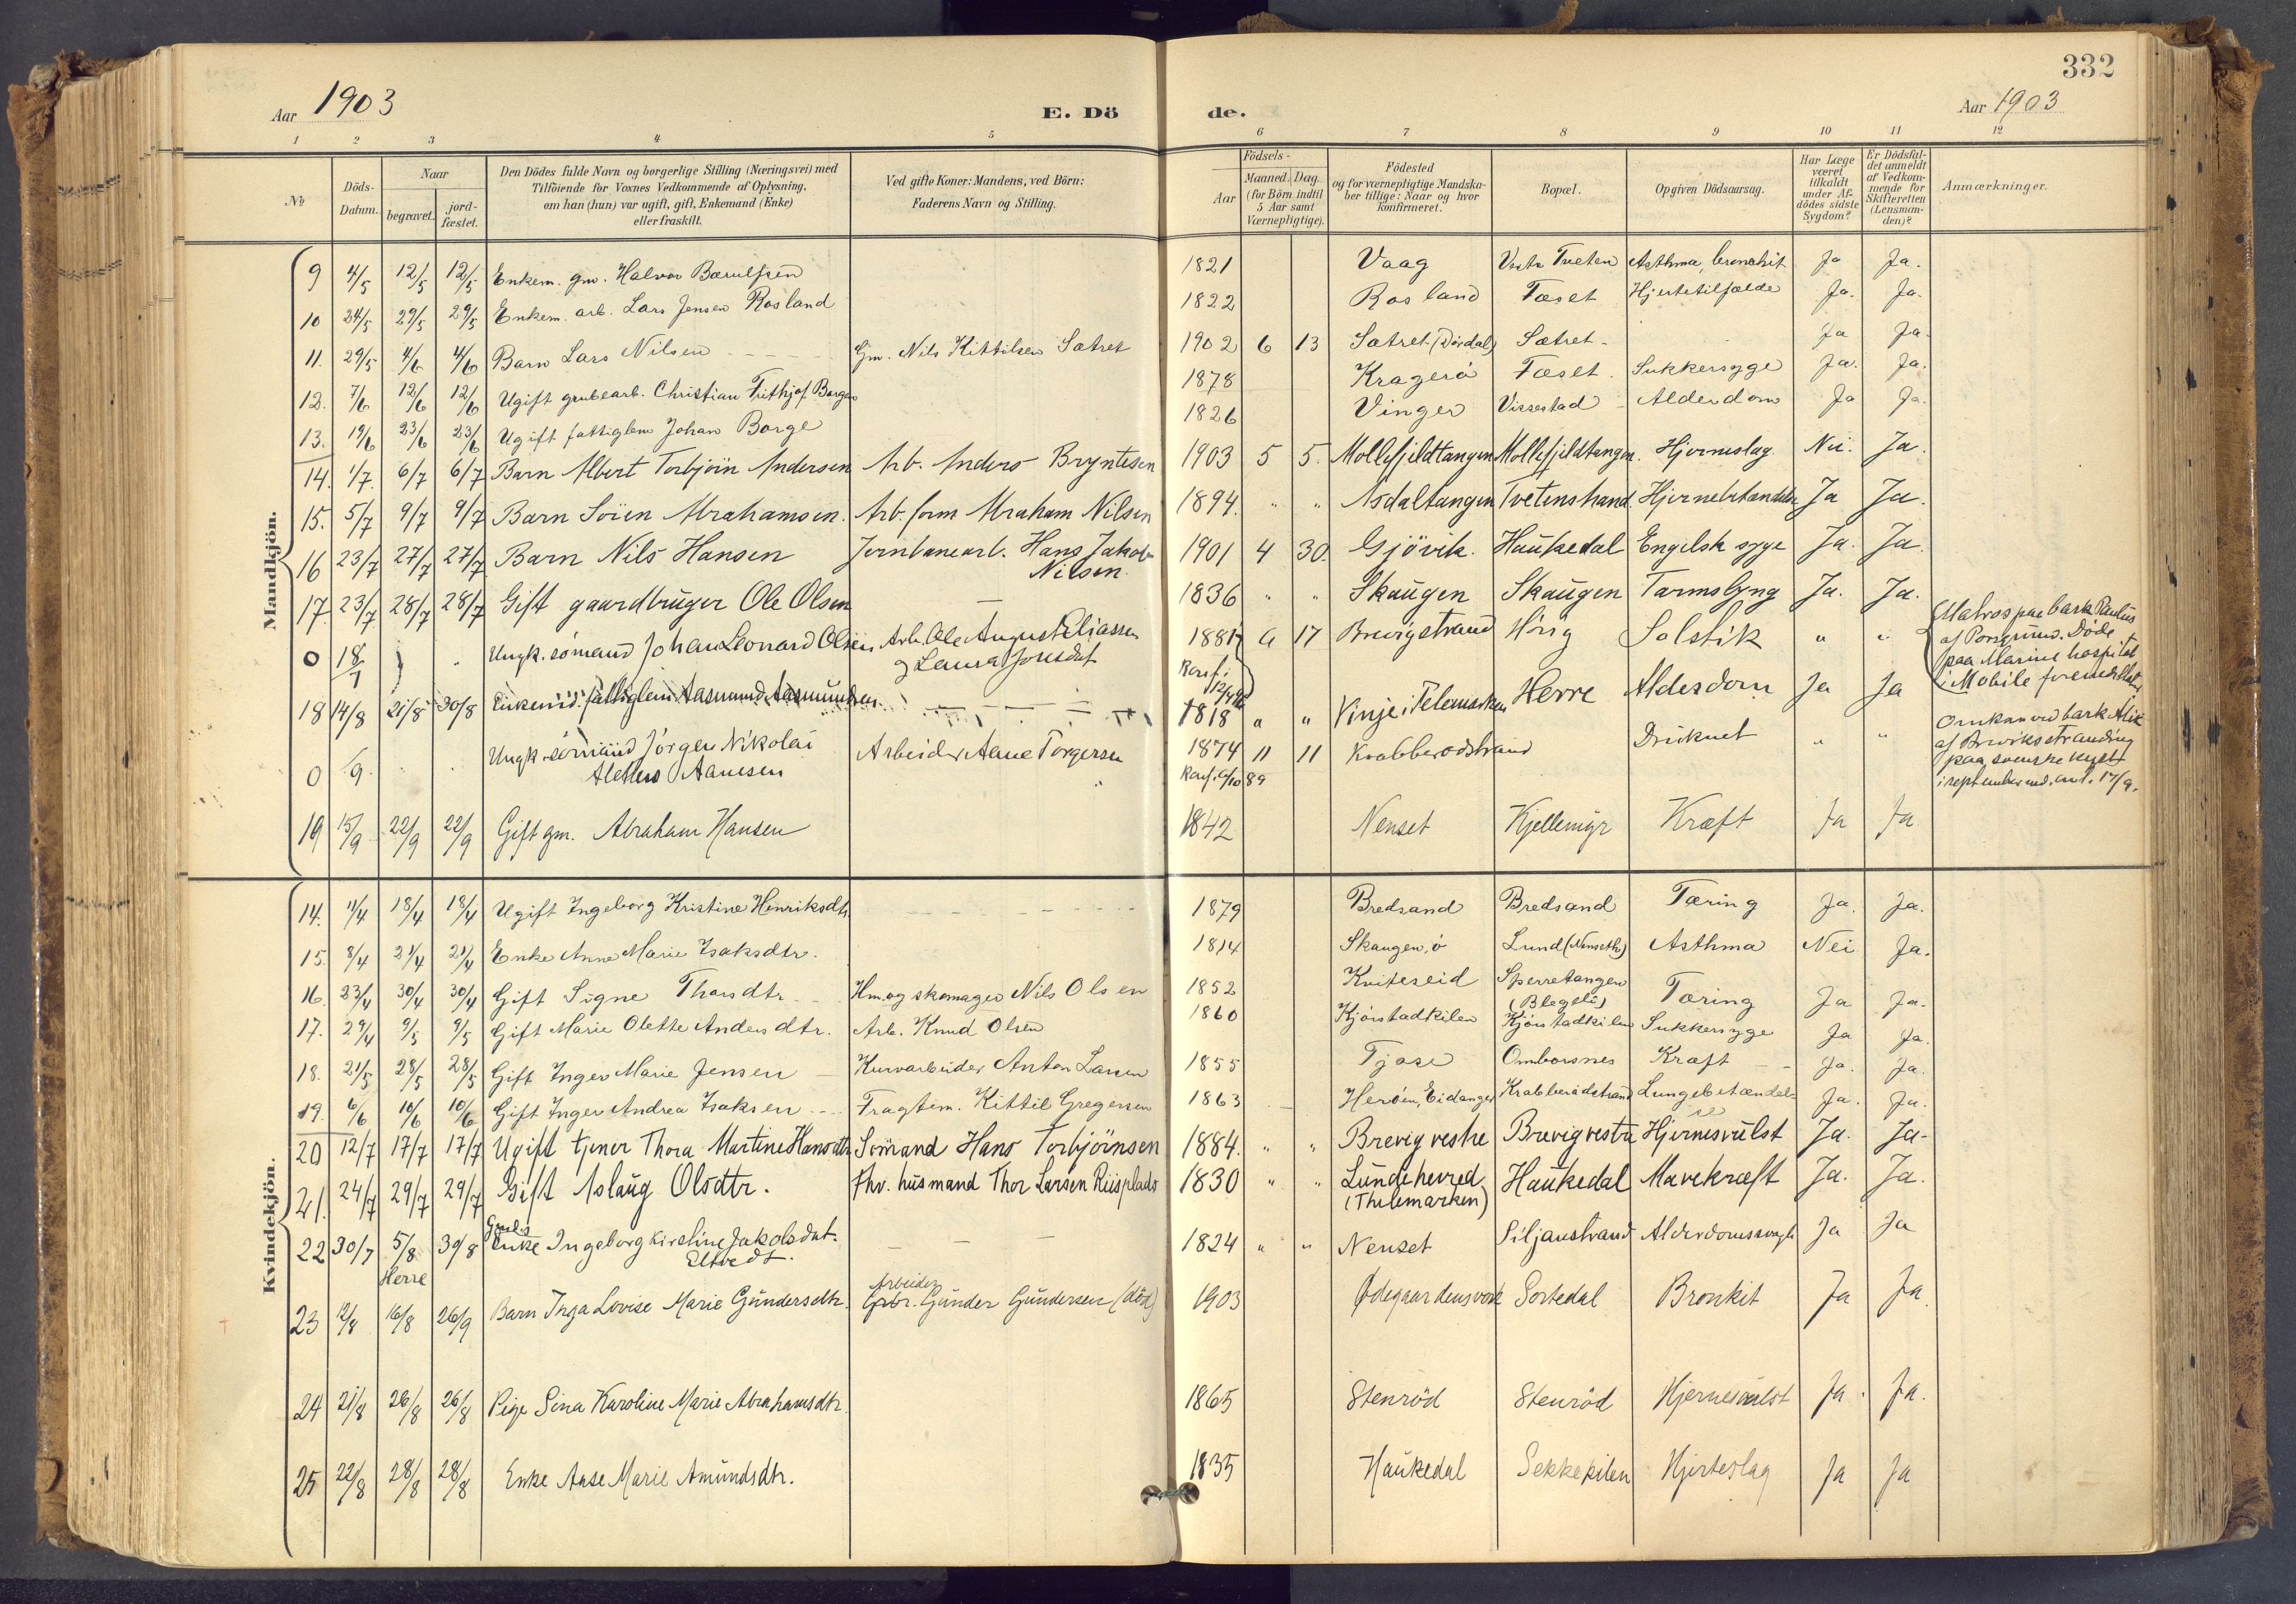 332
Aar 1903 E. Dö de. Aar 1903
1 2 3 4 5 6 7 8 9 10 11 12
№ Döds-Datum. Naar begravet. jord-fæstet. Den Dödes fulde Navn og borgerlige Stilling (Næringsvei) med Tilföiende for Voxnes Vedkommende af Oplysning, om han (hun) var ugift, gift, Enkemand (Enke) eller fraskilt. Ved gifte Koner: Mandens, ved Börn: Faderens Navn og Stilling. Födsels- Aar Maaned. Dag. (for Börn indtil 5 Aar samt Værnepligtige). Födested og for værnepligtige Mandskaber tillige: Naar og hvor konfirmeret. Bopæl. Opgiven Dödsaarsag. Har Læge været tilkaldt under Afdödes sidste Sygdom? Er Dödsfaldet anmeldt af Vedkommende for Skifteretten (Lensmanden)? Anmærkninger.
Mandkjön.
9 4/5 12/5 12/5 Enkem. gm. Halvor Bærulfsen 1821 Vaag Vestr Tveten Asthma, bronchit Ja Ja.
10 24/5 29/5 29/5 Enkem. arb. Lars Jensen Rosland 1822 Rosland Tæset Hjertetilfælde Ja. Ja.
11. 29/5 4/6 4/6 Barn Lars Nilsen Gm. Nils Kittilsen Sætret 1902 6 13 Sætret (Dördal) Sætret Ja Ja.
12. 7/6 12/6 12/6 Ugift grubearb. Christian Frithjof Borgen 1878 Kragerö Tæset. Sukkersyge Ja. Ja.
13. 19/6 23/6 23/6 Ugift fattiglem Johan Borge 1826 Vinger Vissestad Alderdom Ja Ja.
14. 1/7. 6/7 6/7 Barn Albert Torbjörn Andersen Arb. Anders Bryntesen 1903 5 5. Mollefjeldtangen Mollefjeldtangen. Hjerneslag. Nei. Ja.
15. 5/7 9/7 9/7 Barn Sören Abrahamsen. Arb. form Abraham Nilsen 1894. " " Asdaltangen Tvetenstrand. Hjernebetændelse Ja Ja.
16 23/7 27/7 27/7 Barn Nils Hansen Jernbanearb. Hans Jakob Nilsen. 1901 4 30. Gjövik. Haukedal Engelsk syge Ja. Ja.
17. 23/7 28/7 28/7 Gift gaardbruger Ole Olsen — 1836 " " Skaugen Skaugen Tarmslyng Ja. Ja.
0 18/7 Ungk. sömand Johan Leonard Olsen Arb. Ole August Eliassen g Laura Jonsdat 1881 9 17 Brevigstrand Hörig Solstik " " Matros paa bark Paulus af Porsgrund. Döde paa Marine hospital i Mobile
18 14/8 21/8 30/8 Enkemd. fattiglem Aasmund Aasmundsen 1818 " " Vinje i Telemarken Herre Alderdom Ja Ja
0 /9. Ungk. sömand Jörgen Nikolai Alethius Aanesen Arbeider Aane Torgersen 1874 11 11 Krabberodstrand Druknet " " Omkom ved bark Alix af Breviks stranding paa svenske kyst i september md. anl. 17/9.
Konf. 6/10 89
19 15/9 22/9 22/9 Gift gm. Abraham Hansen 1842 Nenset Kjellemyr Kræft Ja Ja
Kvindekjön.
14. 11/4 18/4 18/4 Ugift Ingeborg Kristine Henriksdtr. 1879 Bredsand Bredsand Tæring Ja. Ja.
15. 8/4 21/4 21/4 Enke Anne Marie Isaksdtr. 1814 Skaugen, ö Lund (Nenseth) Asthma Nei Ja.
16. 23/4 30/4 30/4 Gift Signe Thorsdtr. Hm. og skomager Nils Olsen 1852 Kviteseid Sperretangen (Blegeli) Tæring Ja Ja.
17. 29/4 9/5 9/5 Gift Marie Olette Andersdtr. Arb. Knud Olsen 1860 Kjörstadkilen Kjörstadkilen Sukkersyge Ja Ja.
18. 21/5 28/5 28/5 Gift Inger Marie Jensen Kurvarbeider Anton Larsen 1855 Tjose Omborsnes Kræft Ja. Ja.
19. 6/6 10/6 10/6 Gift Inger Andrea Isaksen Fragtem. Kittil Gregersen 1863 Heröen, Eidanger Krabberödstrand Lungebetændelse Ja. Ja.
20 12/7 17/7 17/7 Ugift tjener Thora Martine Hansdtr. Sömand Hans Torbjörnsen 1884. " " Brevig vestre Brevig vestre Hjernesvulst Ja. Ja-
21. 24/7 29/7 29/7 Gift Aslaug Olsdtr. Fhv. husmand Thor Larsen Riisplads 1830 " " Lundeherred (Thelemarken) Haukedal Mavekræft Ja. Ja.
22 30/7 5/8 Herre 30/8 Enke Ingeborg Kirstine Jakobsdat. Eltvedt. 1824 " " Nenset Siljanstrand Alderdomssvagh Ja Ja
23 12/8 16/8 26/9 Barn Inga Lovise Marie Gundersdtr. Arbeider Gunder Gundersen (död) 1903 Ødegaardensverk Sortedal Bronkit Ja Ja.
24 21/8 26/8 26/8 Pige Sina Karoline Marie Abrahamsdtr. 1865 Stenröd Stenröd Hjernesvulst Ja. Ja.
25 22/8 28/8 28/8 Enke Aase Marie Amundsdtr. 1835 Haukedal Sekkekilen Hjerteslag Ja Ja